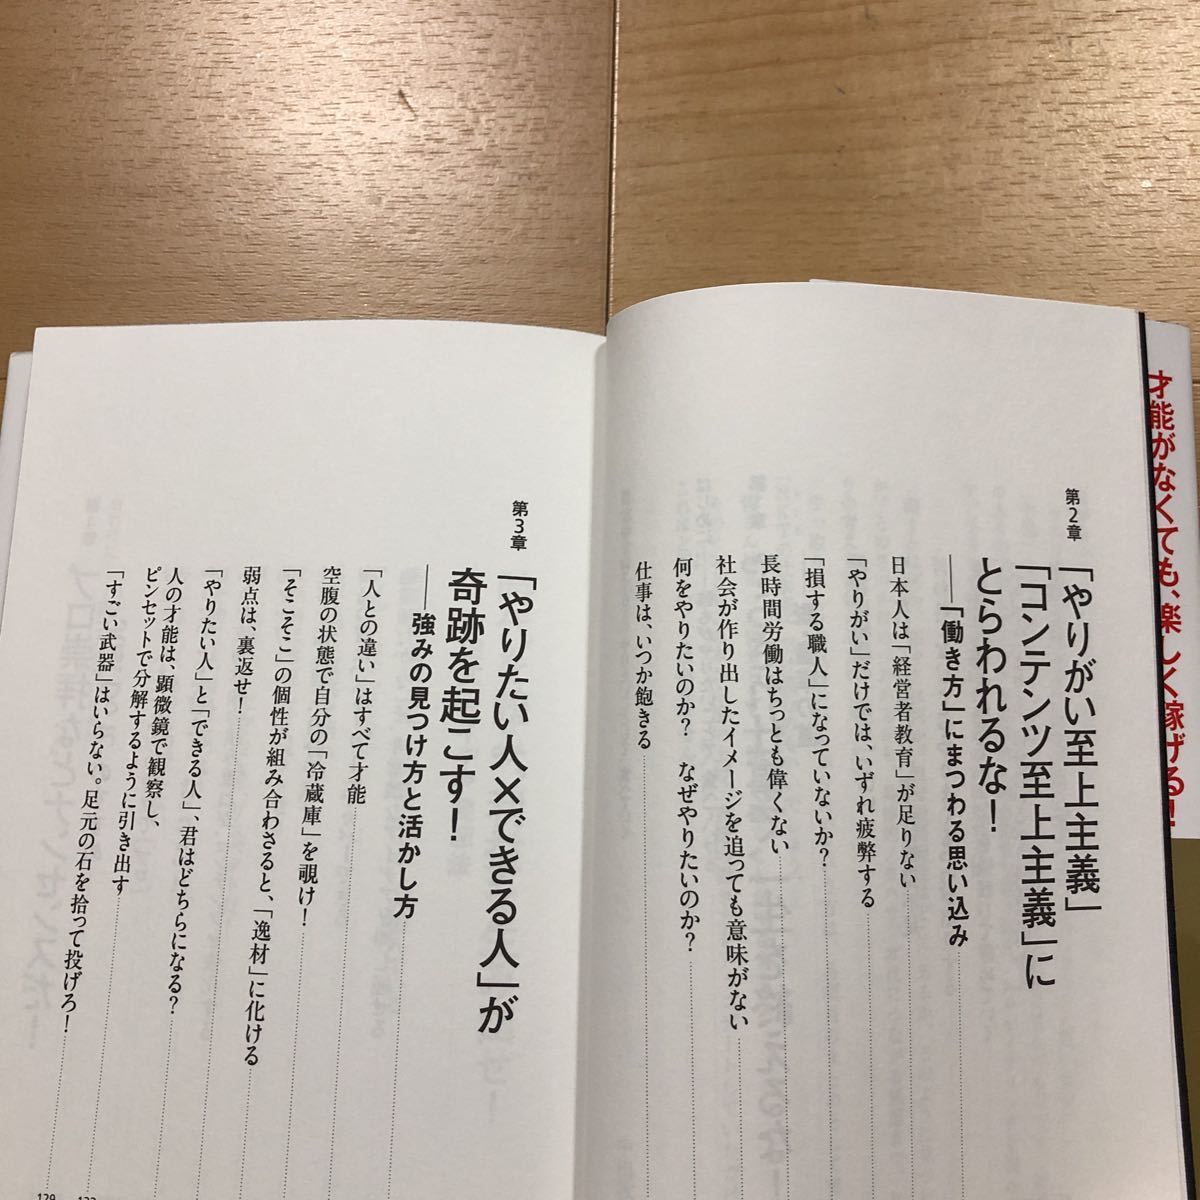 才能がなくても、楽しく稼げる!!
第2章
「やりがい至上主義」
「コンテンツ至上主義」に
とらわれるな！
——「働き方」にまつわる思い込み
日本人は「経営者教育」が足りない
「やりがい」だけでは、いずれ疲弊する
「損する職人」になっていないか？
長時間労働はちっとも偉くない
社会が作り出したイメージを追っても意味がない
何をやりたいのか？　なぜやりたいのか？
仕事は、いつか飽きる
第3章
「やりたい人×できる人」が
奇跡を起こす！
——強みの見つけ方と活かし方
「人との違い」はすべて才能
空腹の状態で自分の「冷蔵庫」を覗け！
「そこそこ」の個性が組み合わさると、「逸材」に化ける
弱点は、裏返せ！
「やりたい人」と「できる人」、君はどちらになる？
人の才能は、顕微鏡で観察し、
ピンセットで分解するように引き出す
「すごい武器」はいらない。足元の石を拾って投げろ！